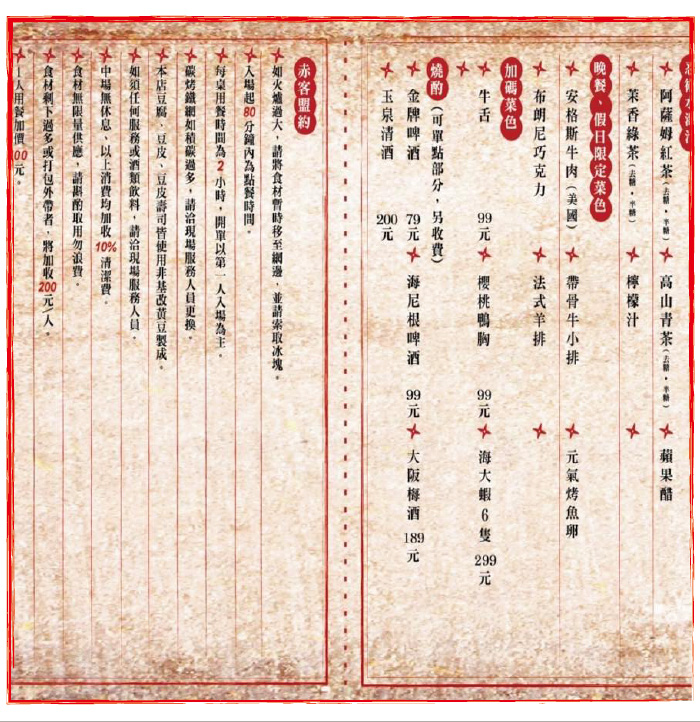 阿薩姆紅茶(去糖・半糖)
高山青茶(去糖・半糖)
蘋果醋
茉香綠茶(去糖・半糖)
檸檬汁
晚餐、假日限定菜色
安格斯牛肉(美國)
帶骨牛小排
元氣烤魚卵
布朗尼巧克力
法式羊排
加碼菜色
牛舌 99元
櫻桃鴨胸 99元
海大蝦6隻 299元
燒酌(可單點部分,另收費)
金牌啤酒 79元
海尼根啤酒 99元
大阪梅酒 189元
玉泉清酒 200元
赤客盟約
如火爐過大,請將食材暫時移至網邊,並請索取冰塊。
入場起80分鐘內為點餐時間。
每桌用餐時間為2小時,開單以第一人入場為主。
碳烤鐵網如積碳過多,請洽現場服務人員更換。
本店豆腐、豆皮、豆皮壽司皆使用非基改黃豆製成。
如須任何服務或酒類飲料,請洽現場服務人員。
中場無休息、以上消費均加收10%清潔費。
食材無限量供應,請斟酌取用勿浪費。
食材剩下過多或打包外帶者,將加收200元/人。
1人用餐加價 00元。